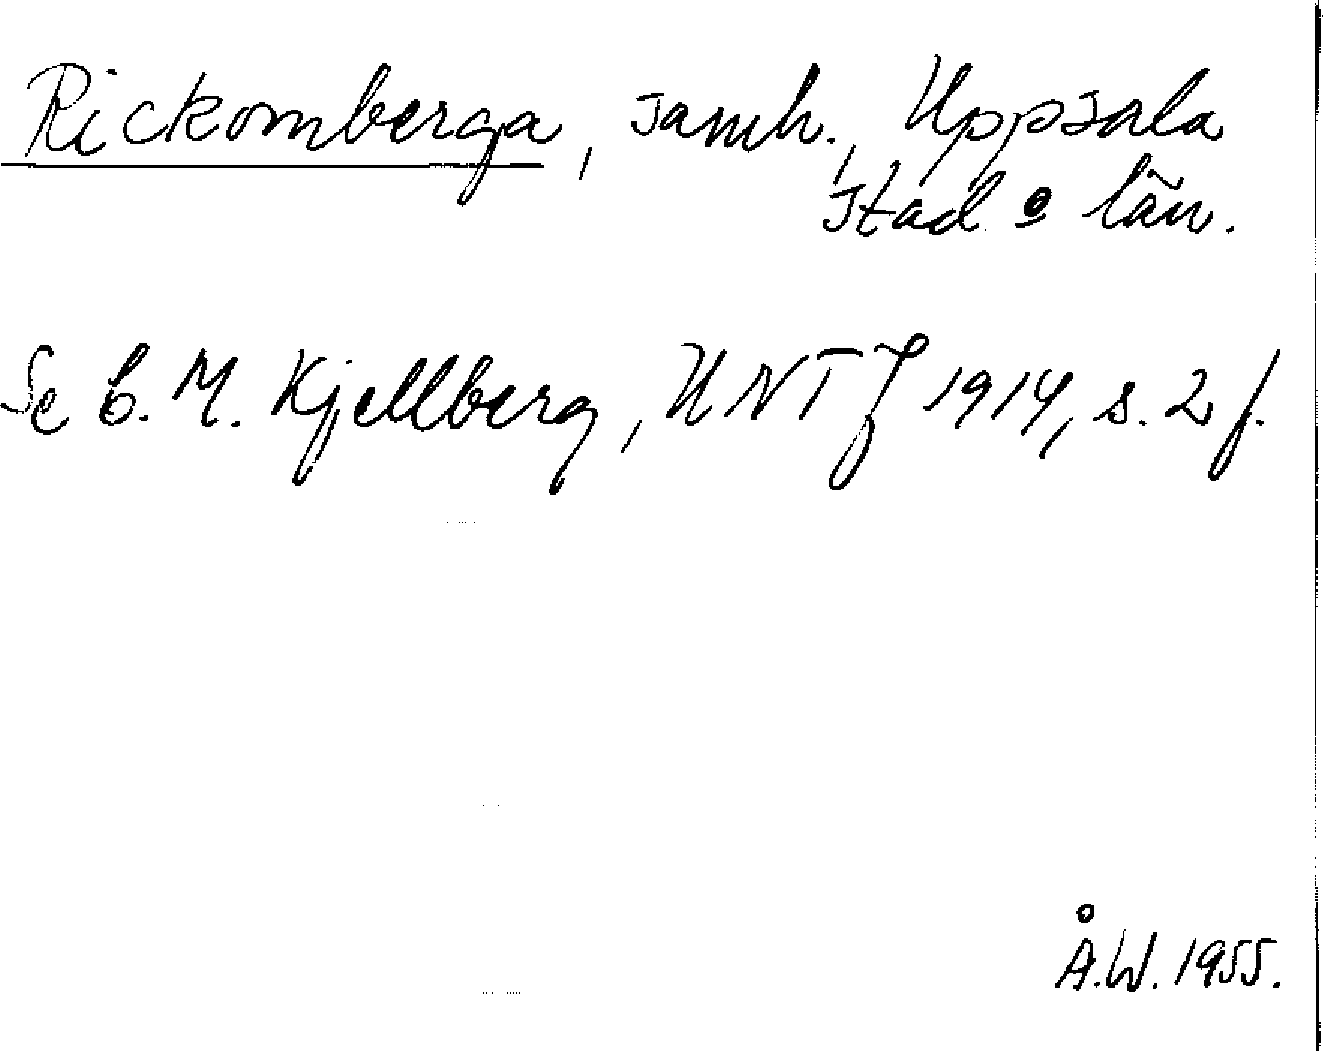 Rickomberga, samh., Uppsala
stad o län.
Se C. M. Kjellberg, UNTJ 1914, s. 2 f.
Å.W. 1955.